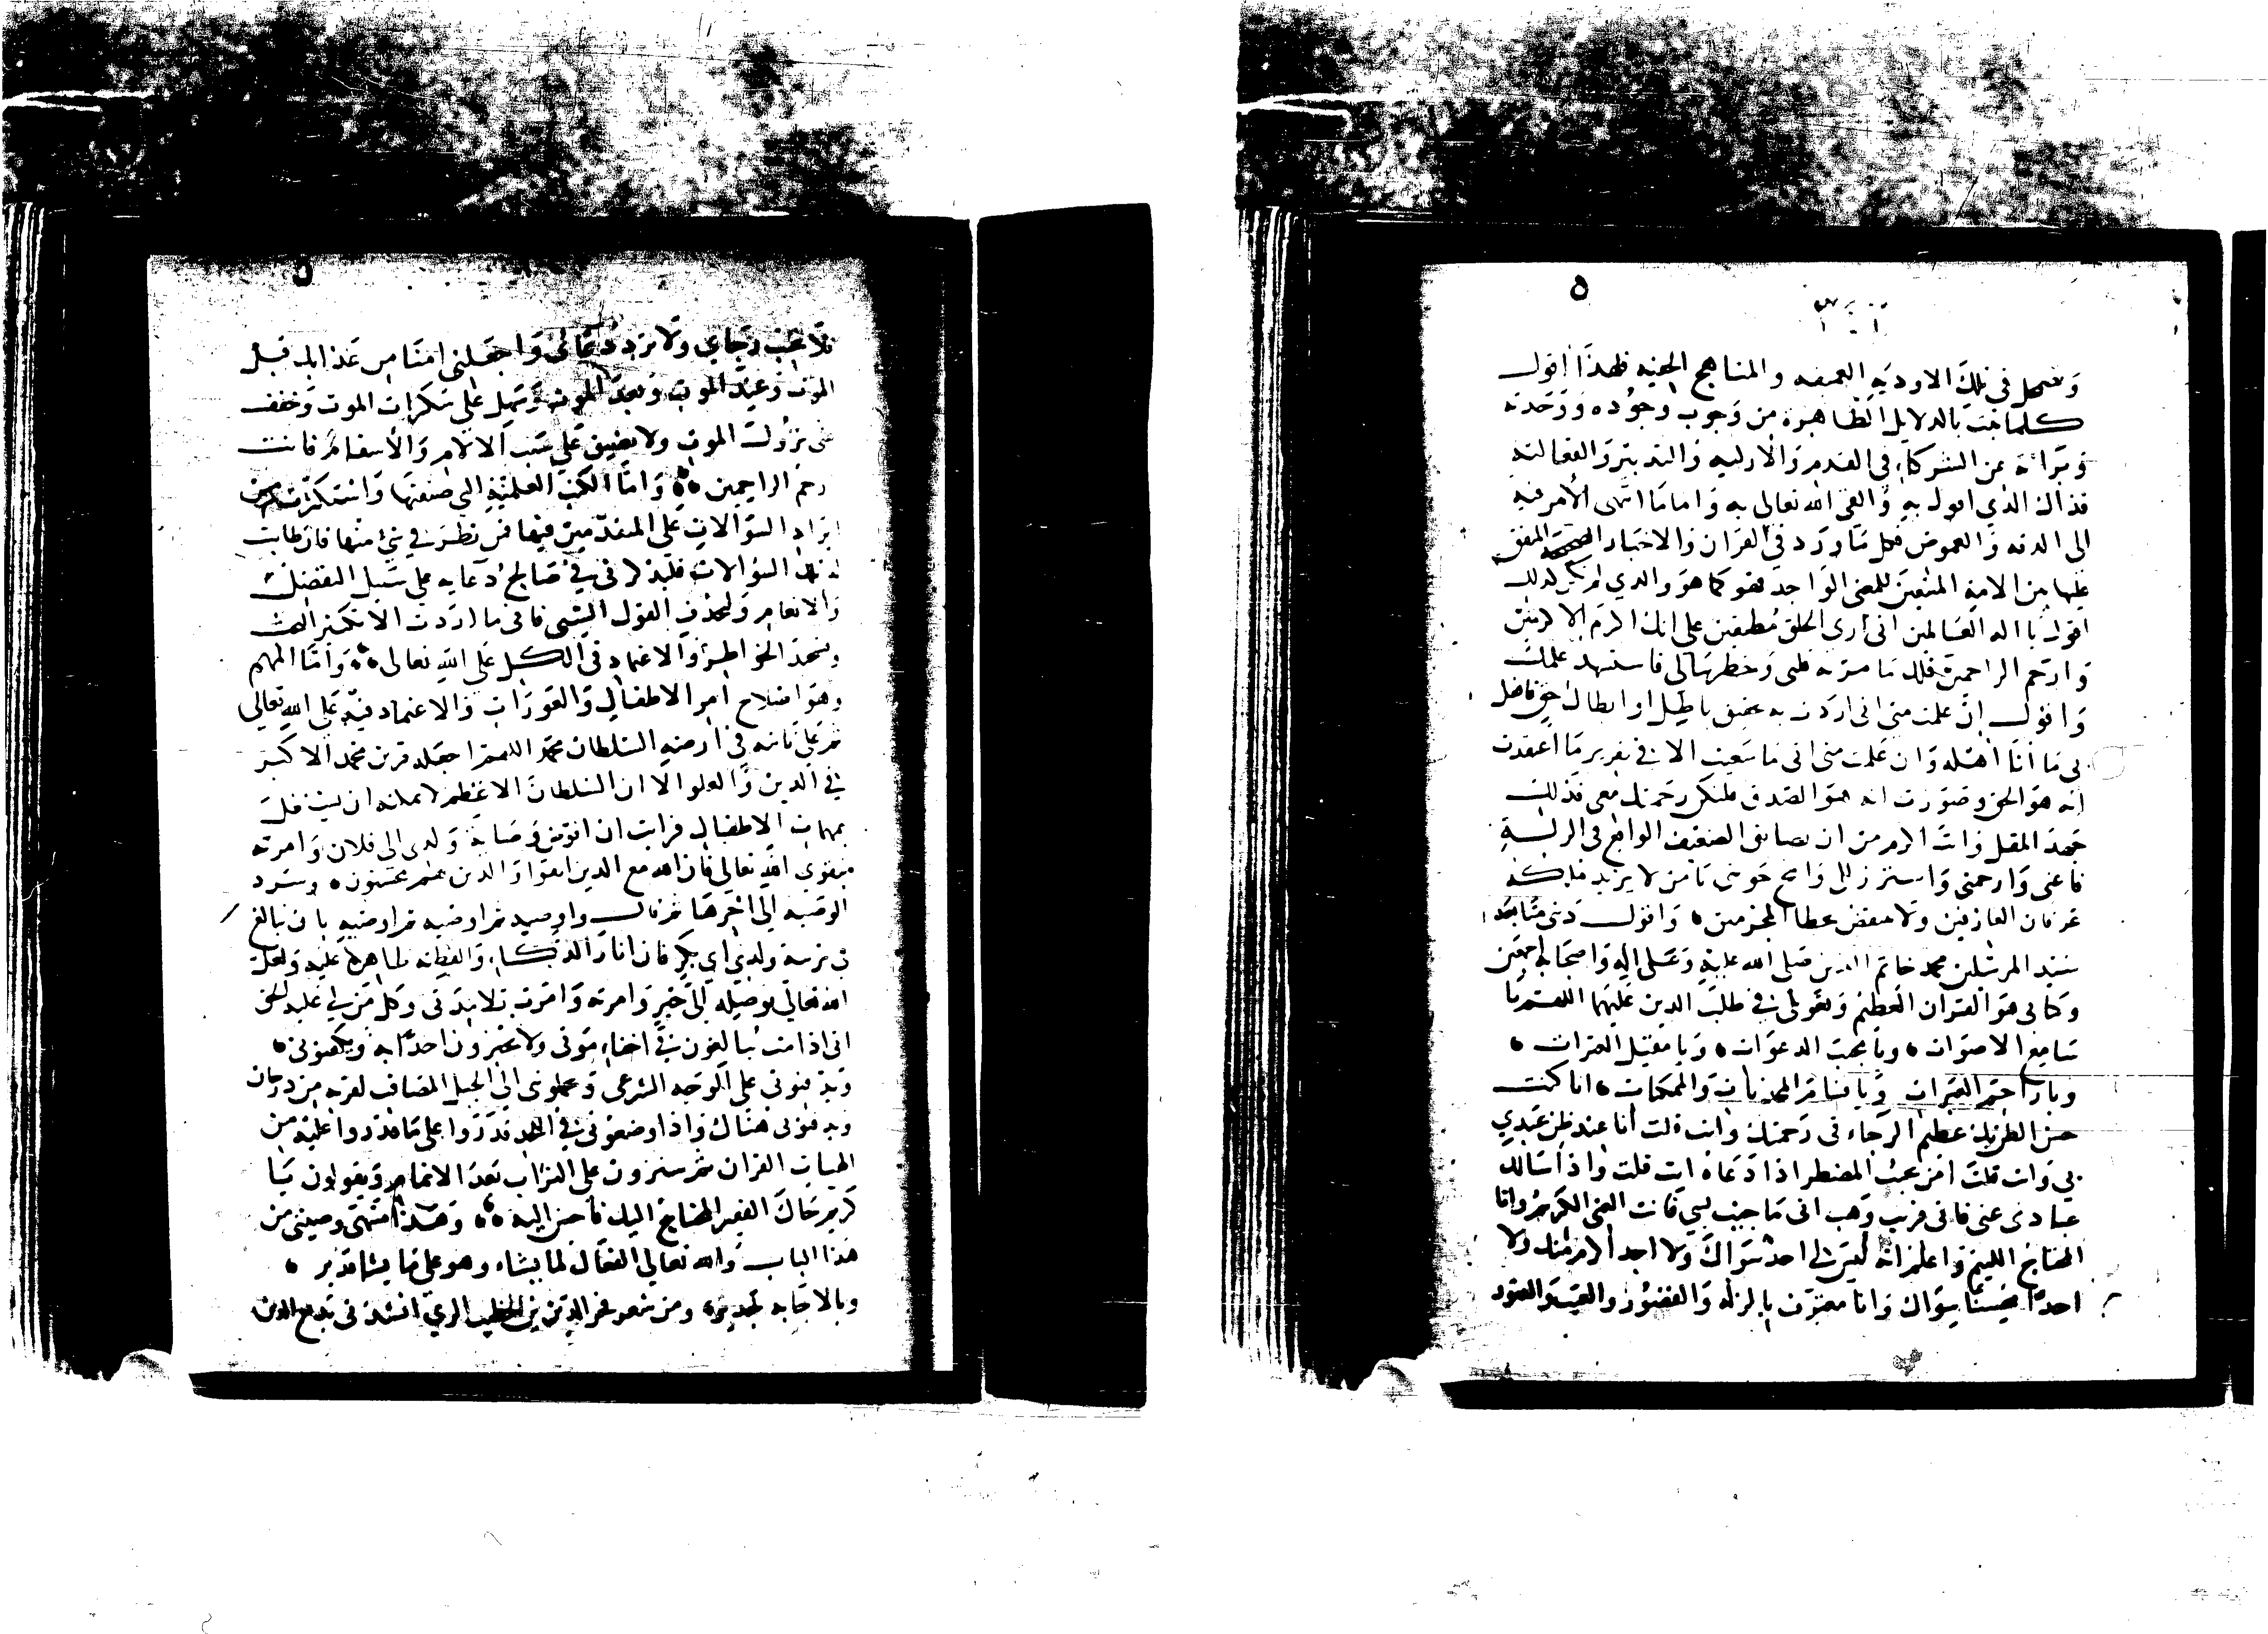 ٥
وتضمحل في تلك الاودية العميقه والمناهج الخفيه فلهذا اقول
كلما ثبت بالدلايل الظاهره من وجوب وجوده ووحدته
وبراته عن الشركاء في القدم والازليه والتدبير والفعاليه
فذاك الذي اقول به والقى الله تعالى به واما ما انتهى الأمر فيه
الى الدقه والغموض فكل ما ورد في القران والاخبار الصحيحه المتفق
عليها بين الامه المتبعين للمعنى الواحد فهو كما هو والذي لم يكن كذلك
اقول يا اله العالمين انى ارى الخلق مطبقين على انك اكرم الاكرمين
وارحم الراحمين فلك ما مر به قلمى وخطر ببالى فاستشهد علمك
واقول ان علمت منى انى اردت به تحقيق باطل او ابطال حق فافعل
بى ما انا اهله وان علمت منى انى ما سعيت الا في تقرير ما اعتقدت
انه هو الحق وتصورت انه هو الصدق فلتكن رحمتك معى فذلك
جهد المقل وانت اكرم من ان تضايق الضعيف الواقع في الزلة
فاغثنى وارحمنى واستر زللى وامح حوبتى يا من لا يزيد ملكه
عرفان العارفين ولا ينقص بخطا المجرمين واقول دينى متابعة
سيد المرسلين محمد خاتم النبيين صلى الله عليه وعلى اله واصحابه اجمعين
وكتابى هو القران العظيم وتعويلى في طلب الدين عليهما اللهم يا
سامع الاصوات ويا مجيب الدعوات ويا مقيل العثرات
ويا راحم العبرات ويا قيام المحدثات والممكنات انا كنت
حسن الظن بك عظيم الرجاء في رحمتك وانت قلت أنا عند ظن عبدي
بي وانت قلت امن يجيب المضطر اذا دعاه وانت قلت واذا سالك
عبادى عنى فانى قريب وهب انى ما جيت بشي فانت الغنى الكريم وانا
المحتاج اللئيم واعلم انه ليس لى احد سواك ولا اجد اكرم منك ولا
احدا محسنا سواك وانا معترف بالزله والقصور والعيب والفتور
٥
فلا تخيب رجاي ولا ترد دعائى واجعلنى امنا من عذابك قبل
الموت وعند الموت وبعد الموت وسهل على سكرات الموت وخفف
عنى نزول الموت ولا تضيق على بسبب الالام والأسقام فانت
ارحم الراحمين واما الكتب العلمية التي صنفتها واستكثرت من
ايراد السؤالات على المتقدمين فيها فمن نظر في شئ منها فان طابت
له تلك السؤالات فليذكرنى في صالح دعايه على سبيل التفضل
والانعام وليحذف القول السيئ فانى ما اردت الا تكثير البحث
وشحذ الخواطر والاعتماد في الكل على الله تعالى واما المهم
وهو اصلاح امر الاطفال والعورات والاعتماد فيه على الله تعالى
ثم على نائبه في ارضه السلطان محمد اللهم اجعله قرين محمد الاكبر
في الدين والعلو الا ان السلطان الاعظم لا يمكنه ان يشتغل
بمهمات الاطفال فرايت ان افوض وصاية ولدى الى فلان وامرته
بتقوى الله تعالى فان الله مع الذين اتقوا والذين هم محسنون وسرد
الوصيه الى اخرها ثم قال واوصيه ثم اوصيه ثم اوصيه بان يبالغ
في تربية ولدي ابي بكر فان اثار الذكاء والفطنه ظاهرة عليه ولعل
الله تعالى يوصله الى خير وامرته وامرت تلامذتى وكل من لى عليه حق
انى اذا مت يبالغون في اخفاء موتى ولا يخبرون احدا به ويكفنونى
ويدفنونى على الوجه الشرعى ويحملونى الى الجبل المصاقب لقريه مزدوخان
ويدفنونى هناك واذا وضعونى في اللحد قدروا على ما قدروا عليه من
الهيات القران ثم ينثرون على التراب بعد الاتمام ويقولون يا
كريم جاك الفقير المحتاج اليك فاحسن اليه وهذا منتهى وصيتى من
هذا الباب والله تعالى الفعال لما يشاء وهو على ما يشا قدير
وبالاجابه جدير ومن شعر فخر الدين بن الخطيب الري انشدنى بديع الدين